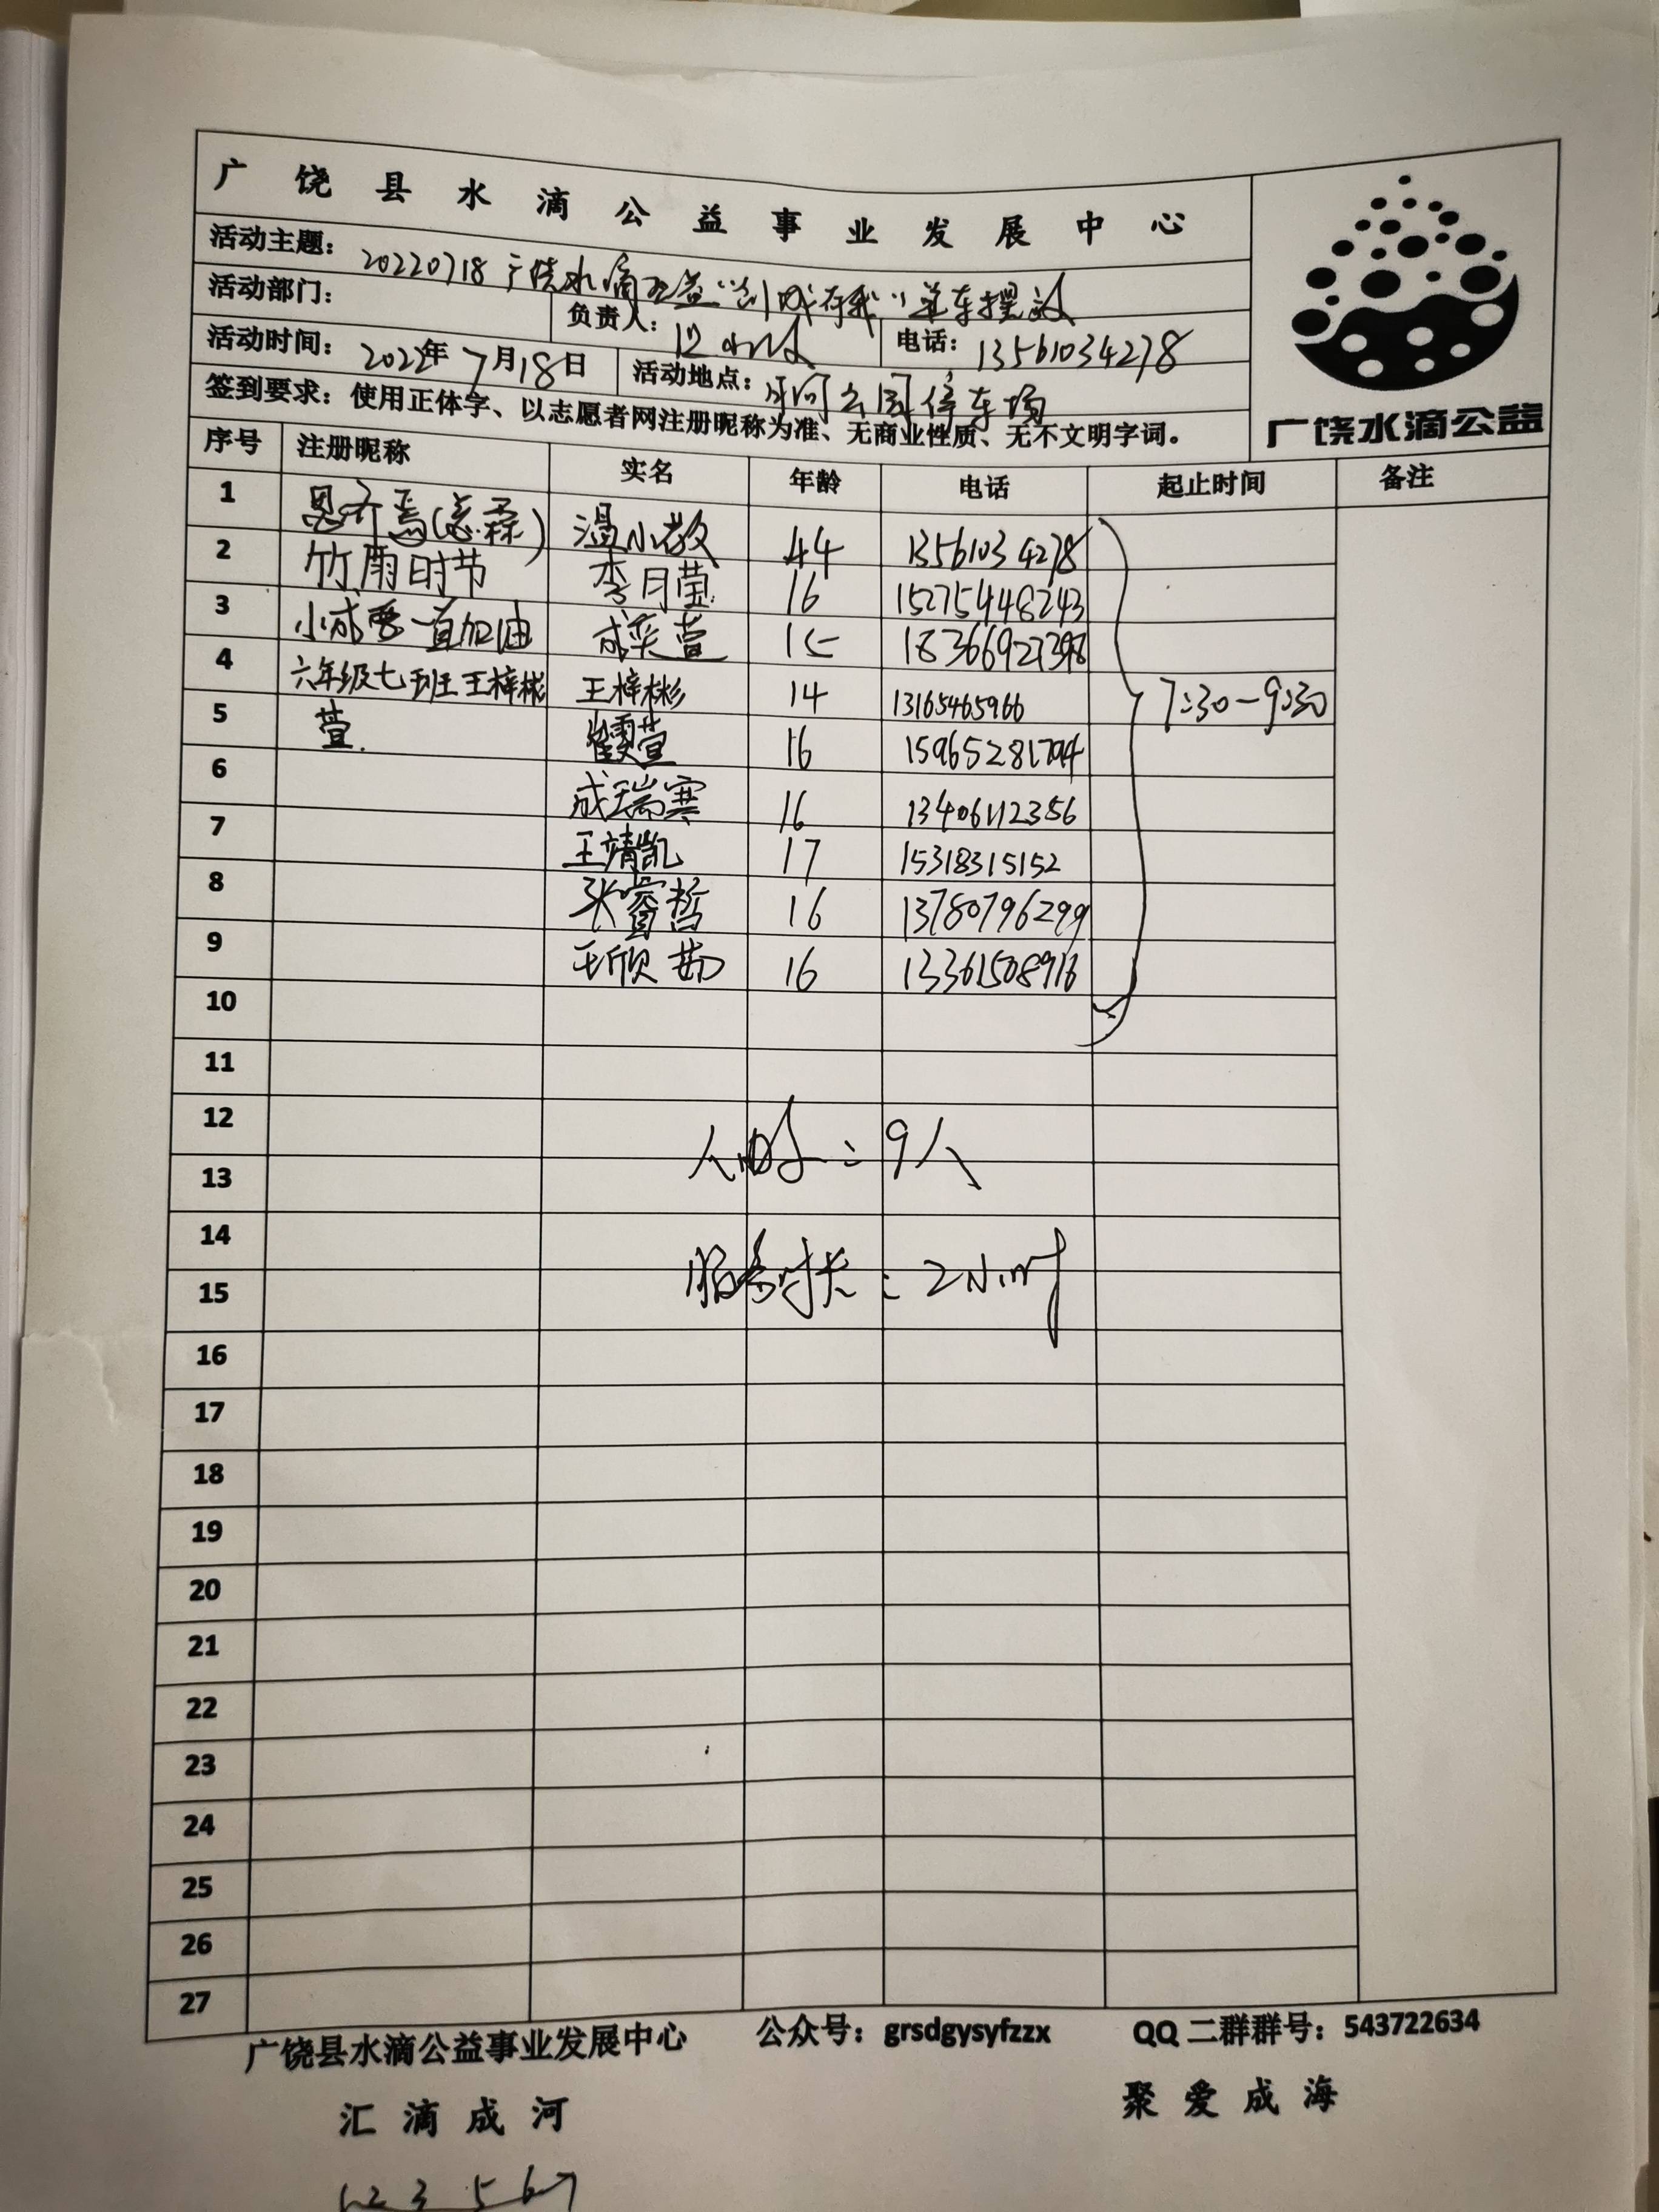 广饶县水滴公益事业发展中心
活动主题：20220718广饶水滴公益“创城有我”单车摆放
活动部门： 负责人： 电话：13561034278
活动时间：2022年7月18日 活动地点：公园停车场
签到要求：使用正体字、以志愿者网注册昵称为准、无商业性质、无不文明字词。
广饶水滴公益
序号 注册昵称 实名 年龄 电话 起止时间 备注
1 温小教 44 13561034278
2 竹雨时节 李月莹 16 15275448243
3 小成要一直加油 成奕萱 15 18366921398
4 六年级七班王梓彬 王梓彬 14 13165465966
7:30-9:30
5 萱. 崔雯萱 16
6 成瑞寒 16 13406112356
7 王靖凯 17 15318315152
8 张睿哲 16 13780796299
9 王欣茹 16 13361508916
10
11
12
人时：9人
13
14
服务时长：2小时
15
16
17
18
19
20
21
22
23
24
25
26
27
广饶县水滴公益事业发展中心 公众号：grsdgysyfzzx QQ二群群号：543722634
汇滴成河 聚爱成海
1 2 3 5 6 7